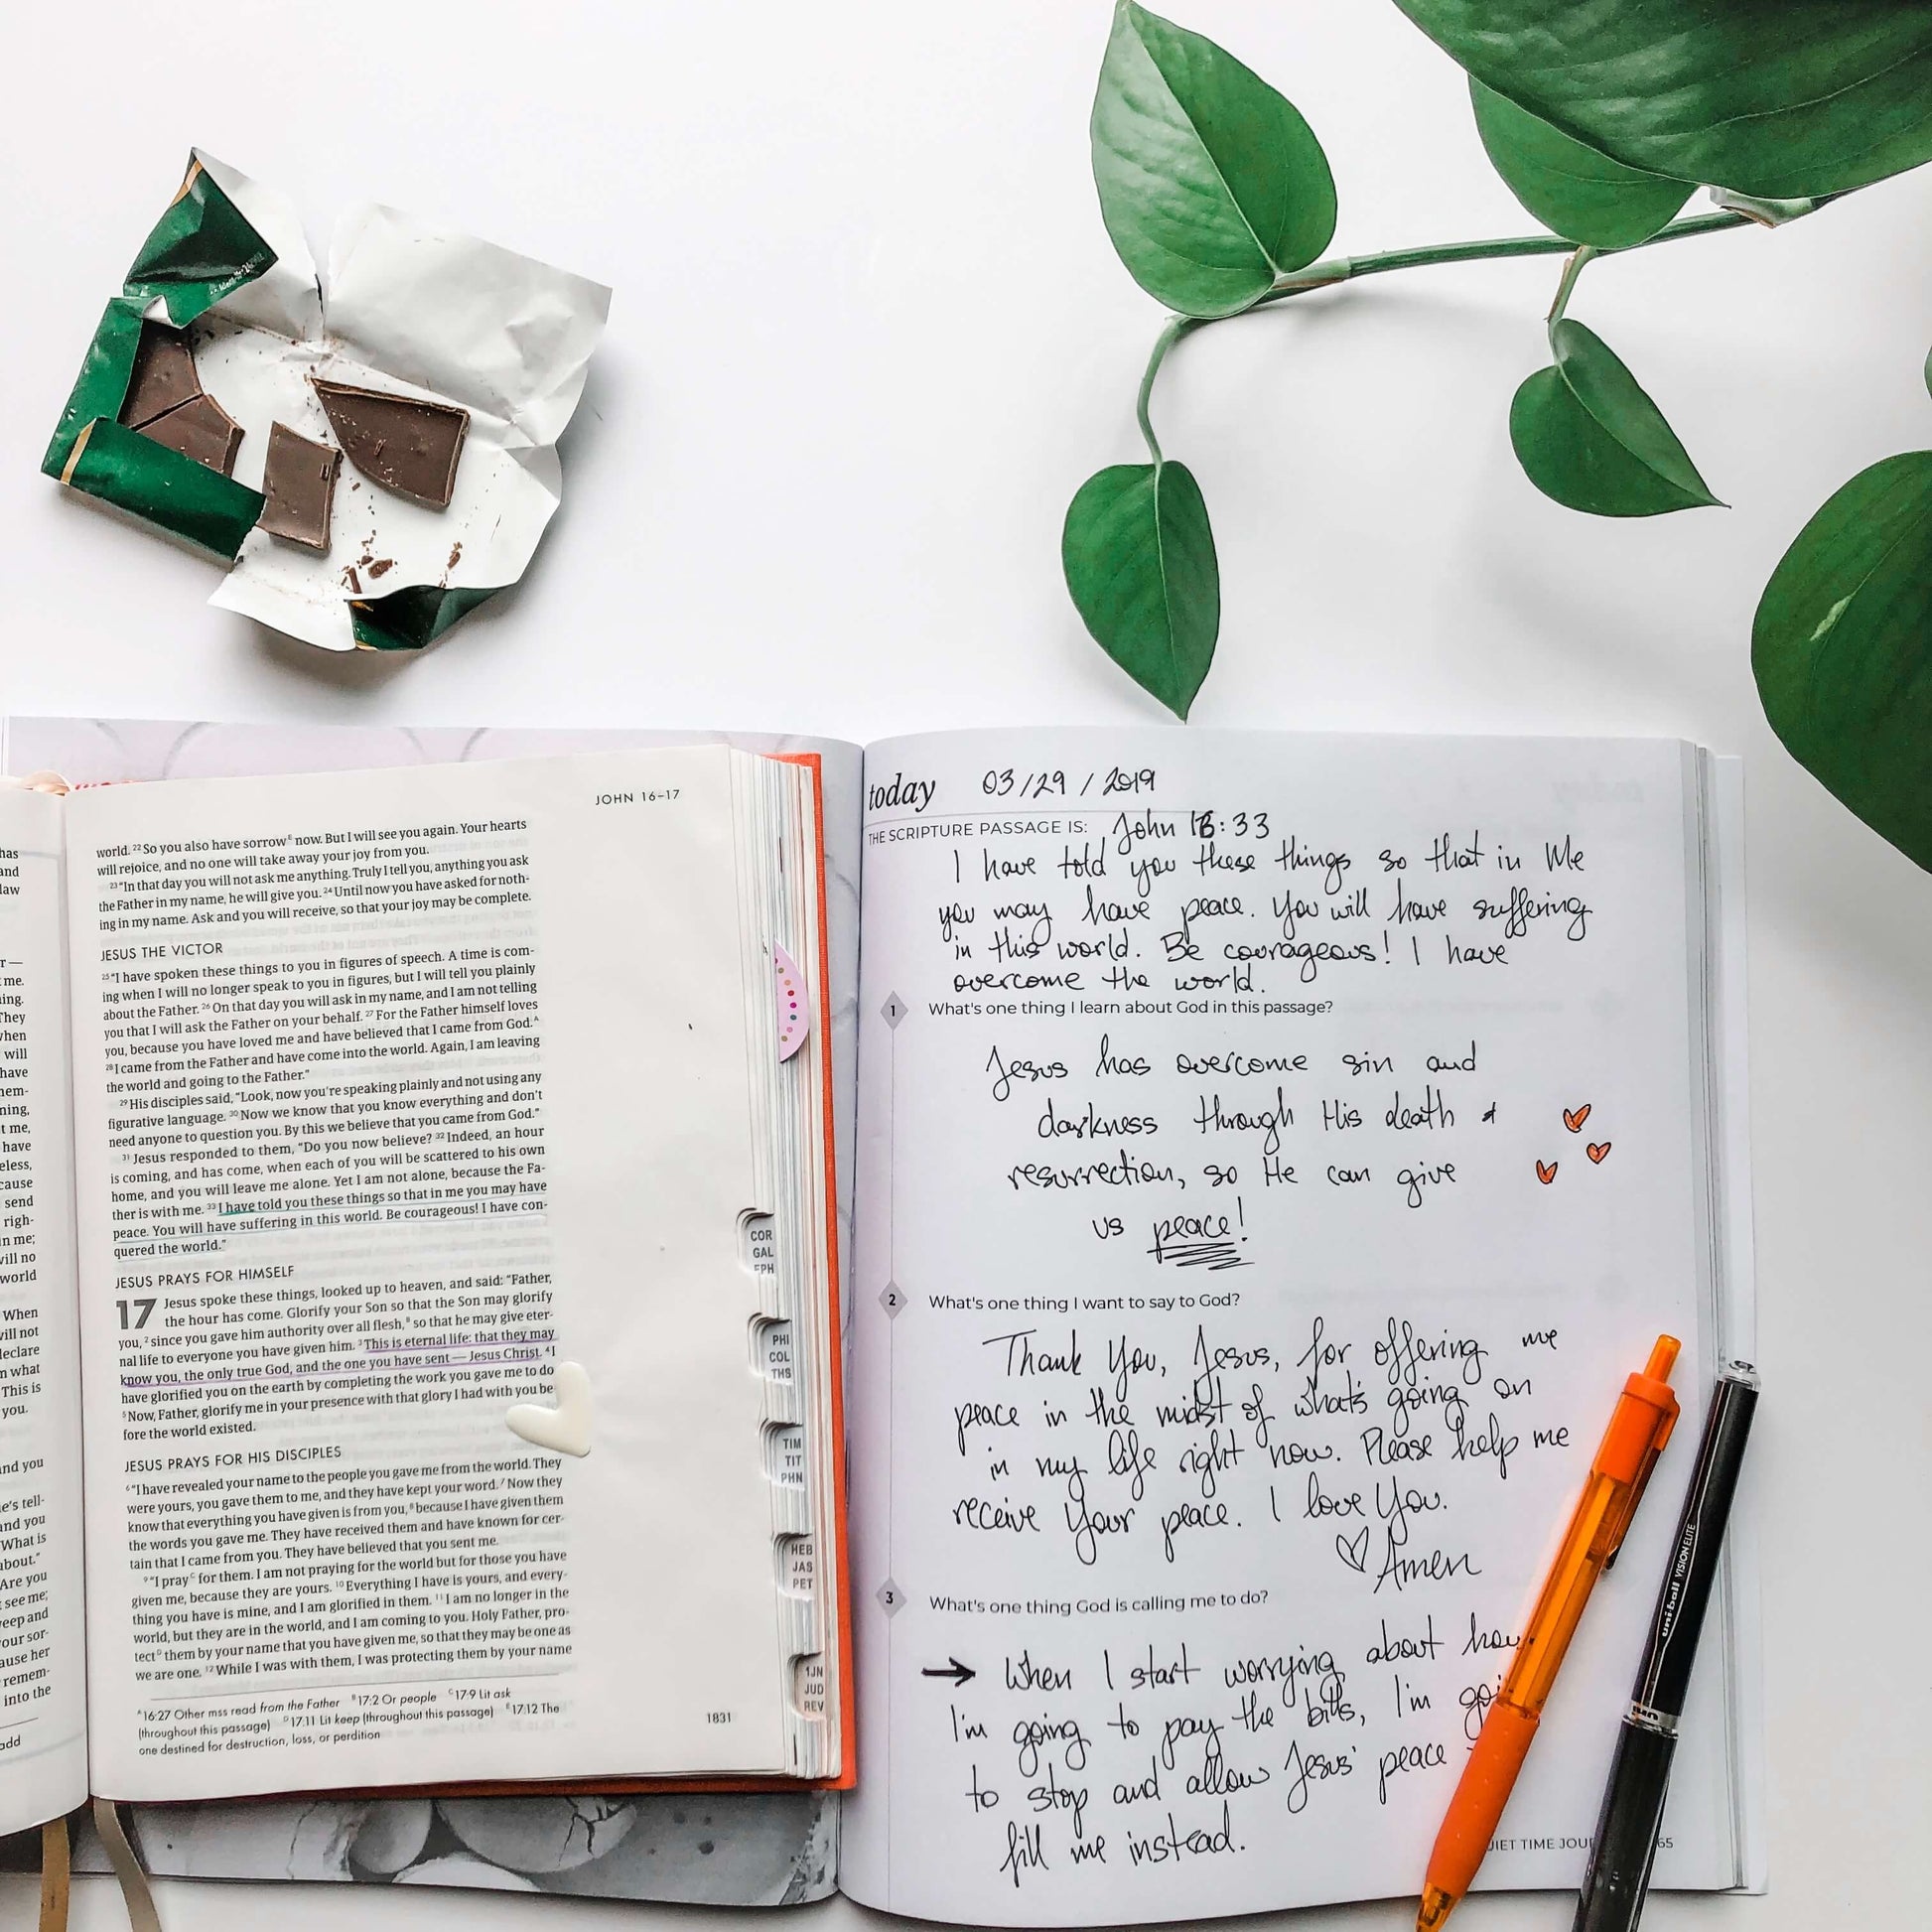 has
and
law
r —
me.
ing.
They
when
will
have
hem-
ning,
t me,
have
eless,
cause
send
righ-
in me;
will no
world
When
vill not
declare
n what
This is
you.
and you
e's tell-
and you
What is
about."
Are you
see me;
veep and
our sor-
ause her
remem-
into the
add
JOHN 16–17
world. 22 So you also have sorrow E now. But I will see you again. Your hearts
will rejoice, and no one will take away your joy from you.
23 "In that day you will not ask me anything. Truly I tell you, anything you ask
the Father in my name, he will give you. 24 Until now you have asked for noth-
ing in my name. Ask and you will receive, so that your joy may be complete.
JESUS THE VICTOR
25 "I have spoken these things to you in figures of speech. A time is com-
ing when I will no longer speak to you in figures, but I will tell you plainly
about the Father. 26 On that day you will ask in my name, and I am not telling
you that I will ask the Father on your behalf. 27 For the Father himself loves
you, because you have loved me and have believed that I came from God. A
28 I came from the Father and have come into the world. Again, I am leaving
the world and going to the Father."
29 His disciples said, "Look, now you're speaking plainly and not using any
figurative language. 30 Now we know that you know everything and don't
need anyone to question you. By this we believe that you came from God."
31 Jesus responded to them, "Do you now believe? 32 Indeed, an hour
is coming, and has come, when each of you will be scattered to his own
home, and you will leave me alone. Yet I am not alone, because the Fa-
ther is with me. 33 I have told you these things so that in me you may have
peace. You will have suffering in this world. Be courageous! I have con-
quered the world."
JESUS PRAYS FOR HIMSELF
17 Jesus spoke these things, looked up to heaven, and said: "Father,
the hour has come. Glorify your Son so that the Son may glorify
you, 2 since you gave him authority over all flesh, B so that he may give eter-
nal life to everyone you have given him. 3 This is eternal life: that they may
know you, the only true God, and the one you have sent — Jesus Christ. 4 I
have glorified you on the earth by completing the work you gave me to do
5 Now, Father, glorify me in your presence with that glory I had with you be
fore the world existed.
JESUS PRAYS FOR HIS DISCIPLES
6 "I have revealed your name to the people you gave me from the world. They
were yours, you gave them to me, and they have kept your word. 7 Now they
know that everything you have given is from you, 8 because I have given them
the words you gave me. They have received them and have known for cer-
tain that I came from you. They have believed that you sent me.
9 "I pray C for them. I am not praying for the world but for those you have
given me, because they are yours. 10 Everything I have is yours, and every-
thing you have is mine, and I am glorified in them. 11 I am no longer in the
world, but they are in the world, and I am coming to you. Holy Father, pro-
tect D them by your name that you have given me, so that they may be one as
we are one. 12 While I was with them, I was protecting them by your name
A 16:27 Other mss read from the Father B 17:2 Or people C 17:9 Lit ask
(throughout this passage) D 17:11 Lit keep (throughout this passage) E 17:12 The
one destined for destruction, loss, or perdition
1831
COR
GAL
EPH
PHI
COL
THS
TIM
TIT
PHN
HEB
JAS
PET
1JN
JUD
REV
today 03/29/2019
THE SCRIPTURE PASSAGE IS: John 16:33
I have told you these things so that in Me
you may have peace. You will have suffering
in this world. Be courageous! I have
overcome the world.
1 What's one thing I learn about God in this passage?
Jesus has overcome sin and
darkness through His death &
resurrection, so He can give
us peace!
2 What's one thing I want to say to God?
Thank You, Jesus, for offering me
peace in the midst of what's going on
in my life right now. Please help me
receive Your peace. I love You.
♡ Amen
3 What's one thing God is calling me to do?
→ When I start worrying about how
I'm going to pay the bills, I'm goi
to stop and allow Jesus' peace
fill me instead.
UIET TIME JOU 65
uni-ball VISION ELITE
uni